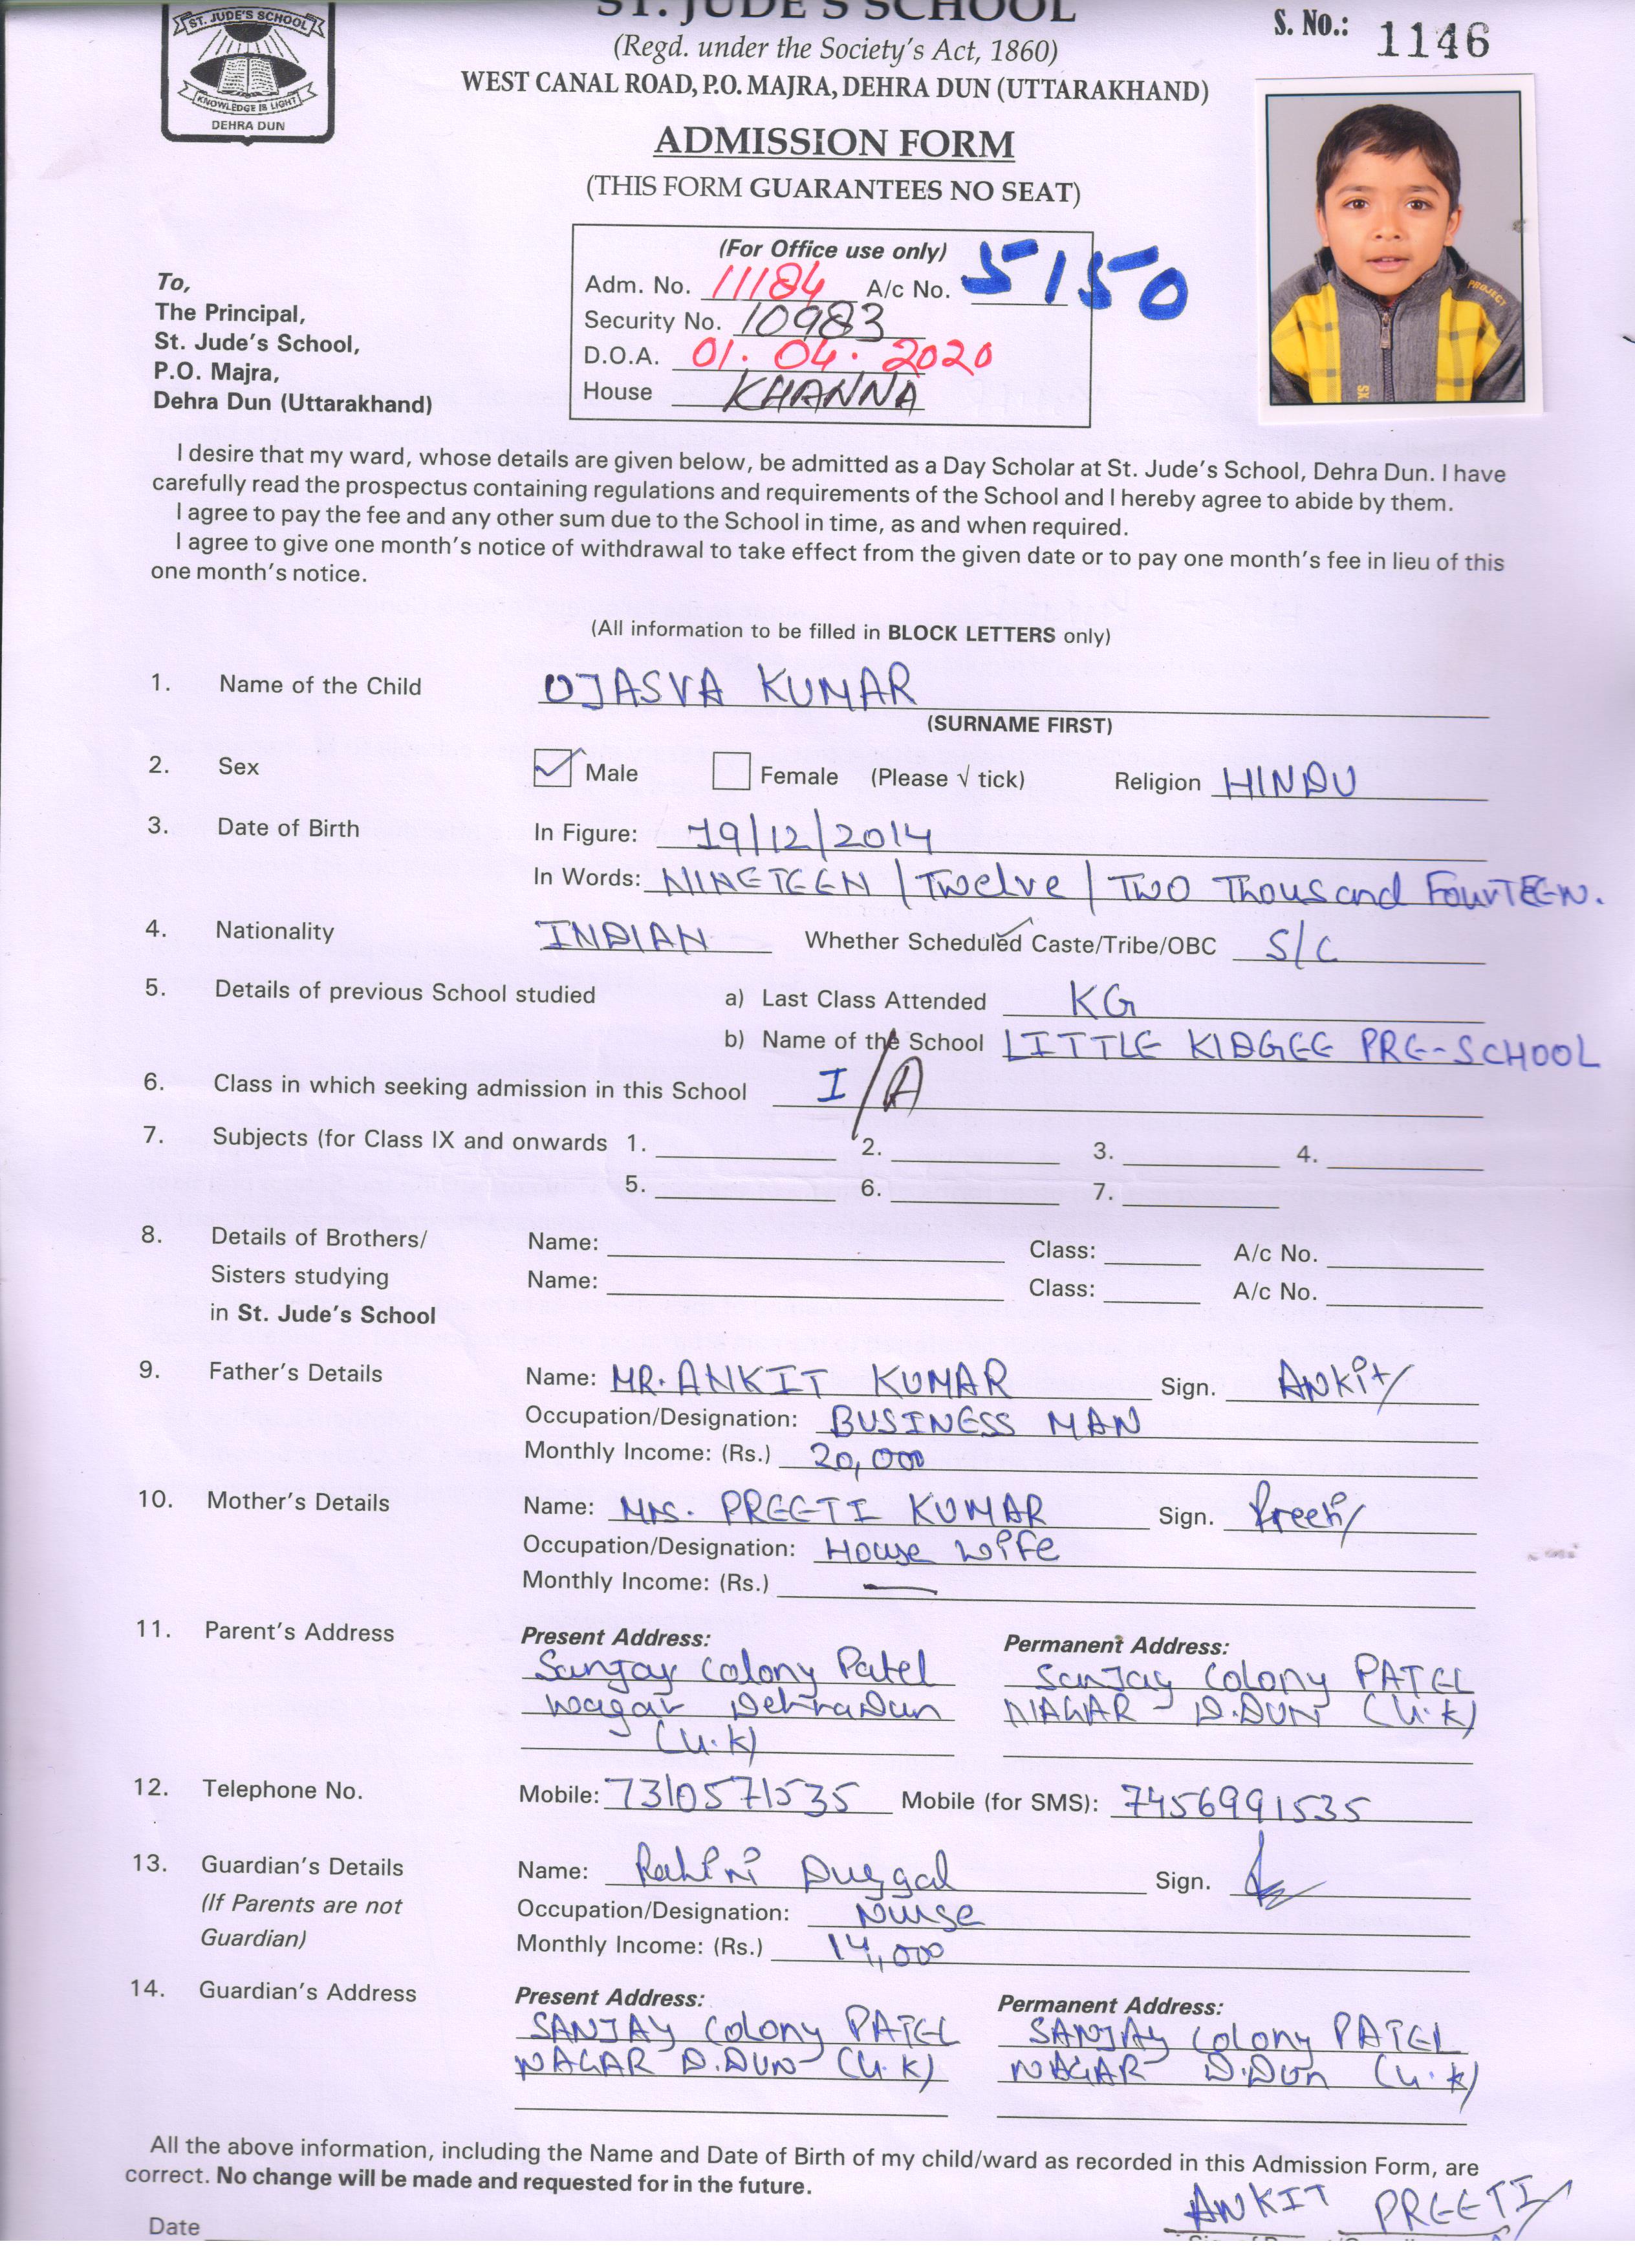 ST. JUDE'S SCHOOL
KNOWLEDGE IS LIGHT
DEHRA DUN
ST. JUDE'S SCHOOL
(Regd. under the Society's Act, 1860)
WEST CANAL ROAD, P.O. MAJRA, DEHRA DUN (UTTARAKHAND)
S. No.: 1146
ADMISSION FORM
(THIS FORM GUARANTEES NO SEAT)
PROJECT
(For Office use only)
Adm. No. 11184 A/c No. 5150
Security No. 10983
D.O.A. 01.04.2020
House KHANNA
To,
The Principal,
St. Jude's School,
P.O. Majra,
Dehra Dun (Uttarakhand)
I desire that my ward, whose details are given below, be admitted as a Day Scholar at St. Jude's School, Dehra Dun. I have
carefully read the prospectus containing regulations and requirements of the School and I hereby agree to abide by them.
I agree to pay the fee and any other sum due to the School in time, as and when required.
I agree to give one month's notice of withdrawal to take effect from the given date or to pay one month's fee in lieu of this
one month's notice.
(All information to be filled in BLOCK LETTERS only)
1. Name of the Child OJASVA KUMAR
(SURNAME FIRST)
2. Sex Male Female (Please √ tick) Religion HINDU
3. Date of Birth In Figure: 19/12/2014
In Words: NINETEEN / Twelve / TWO Thousand FourTEEN.
4. Nationality INDIAN Whether Scheduled Caste/Tribe/OBC S/C
5. Details of previous School studied a) Last Class Attended KG
b) Name of the School LITTLE KIDGEE PRE-SCHOOL
6. Class in which seeking admission in this School I/A
7. Subjects (for Class IX and onwards 1. 2. 3. 4.
5. 6. 7.
8. Details of Brothers/ Name: Class: A/c No.
Sisters studying Name: Class: A/c No.
in St. Jude's School
9. Father's Details Name: MR. ANKIT KUMAR Sign. Ankit
Occupation/Designation: BUSINESS MAN
Monthly Income: (Rs.) 20,000
10. Mother's Details Name: MRS. PREETI KUMAR Sign. Preeti
Occupation/Designation: House wife
Monthly Income: (Rs.) —
11. Parent's Address Present Address: Permanent Address:
Sanjay Colony Patel SanJay Colony PATEL
Nagar DehraDun NAGAR - D.DUN (U.K)
(U.K)
12. Telephone No. Mobile: 7310571535 Mobile (for SMS): 7456991535
13. Guardian's Details Name: Duggal Sign.
(If Parents are not Occupation/Designation: Nurse
Guardian) Monthly Income: (Rs.) 14,000
14. Guardian's Address Present Address: Permanent Address:
SANJAY Colony PATEL SANJAY Colony PATEL
NAGAR D.DUN (U.K) NAGAR D.Dun (U.K)
All the above information, including the Name and Date of Birth of my child/ward as recorded in this Admission Form, are
correct. No change will be made and requested for in the future.
ANKIT PREETI
Date